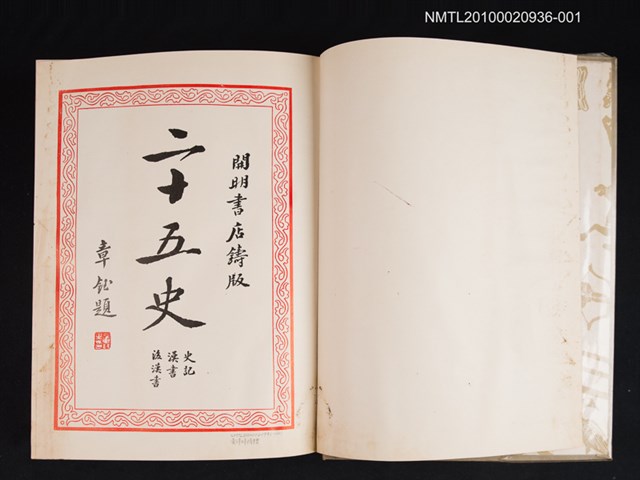 NMTL20100020936-001
開明書店鑄版
二十五史
史記
漢書
後漢書
章鈺題